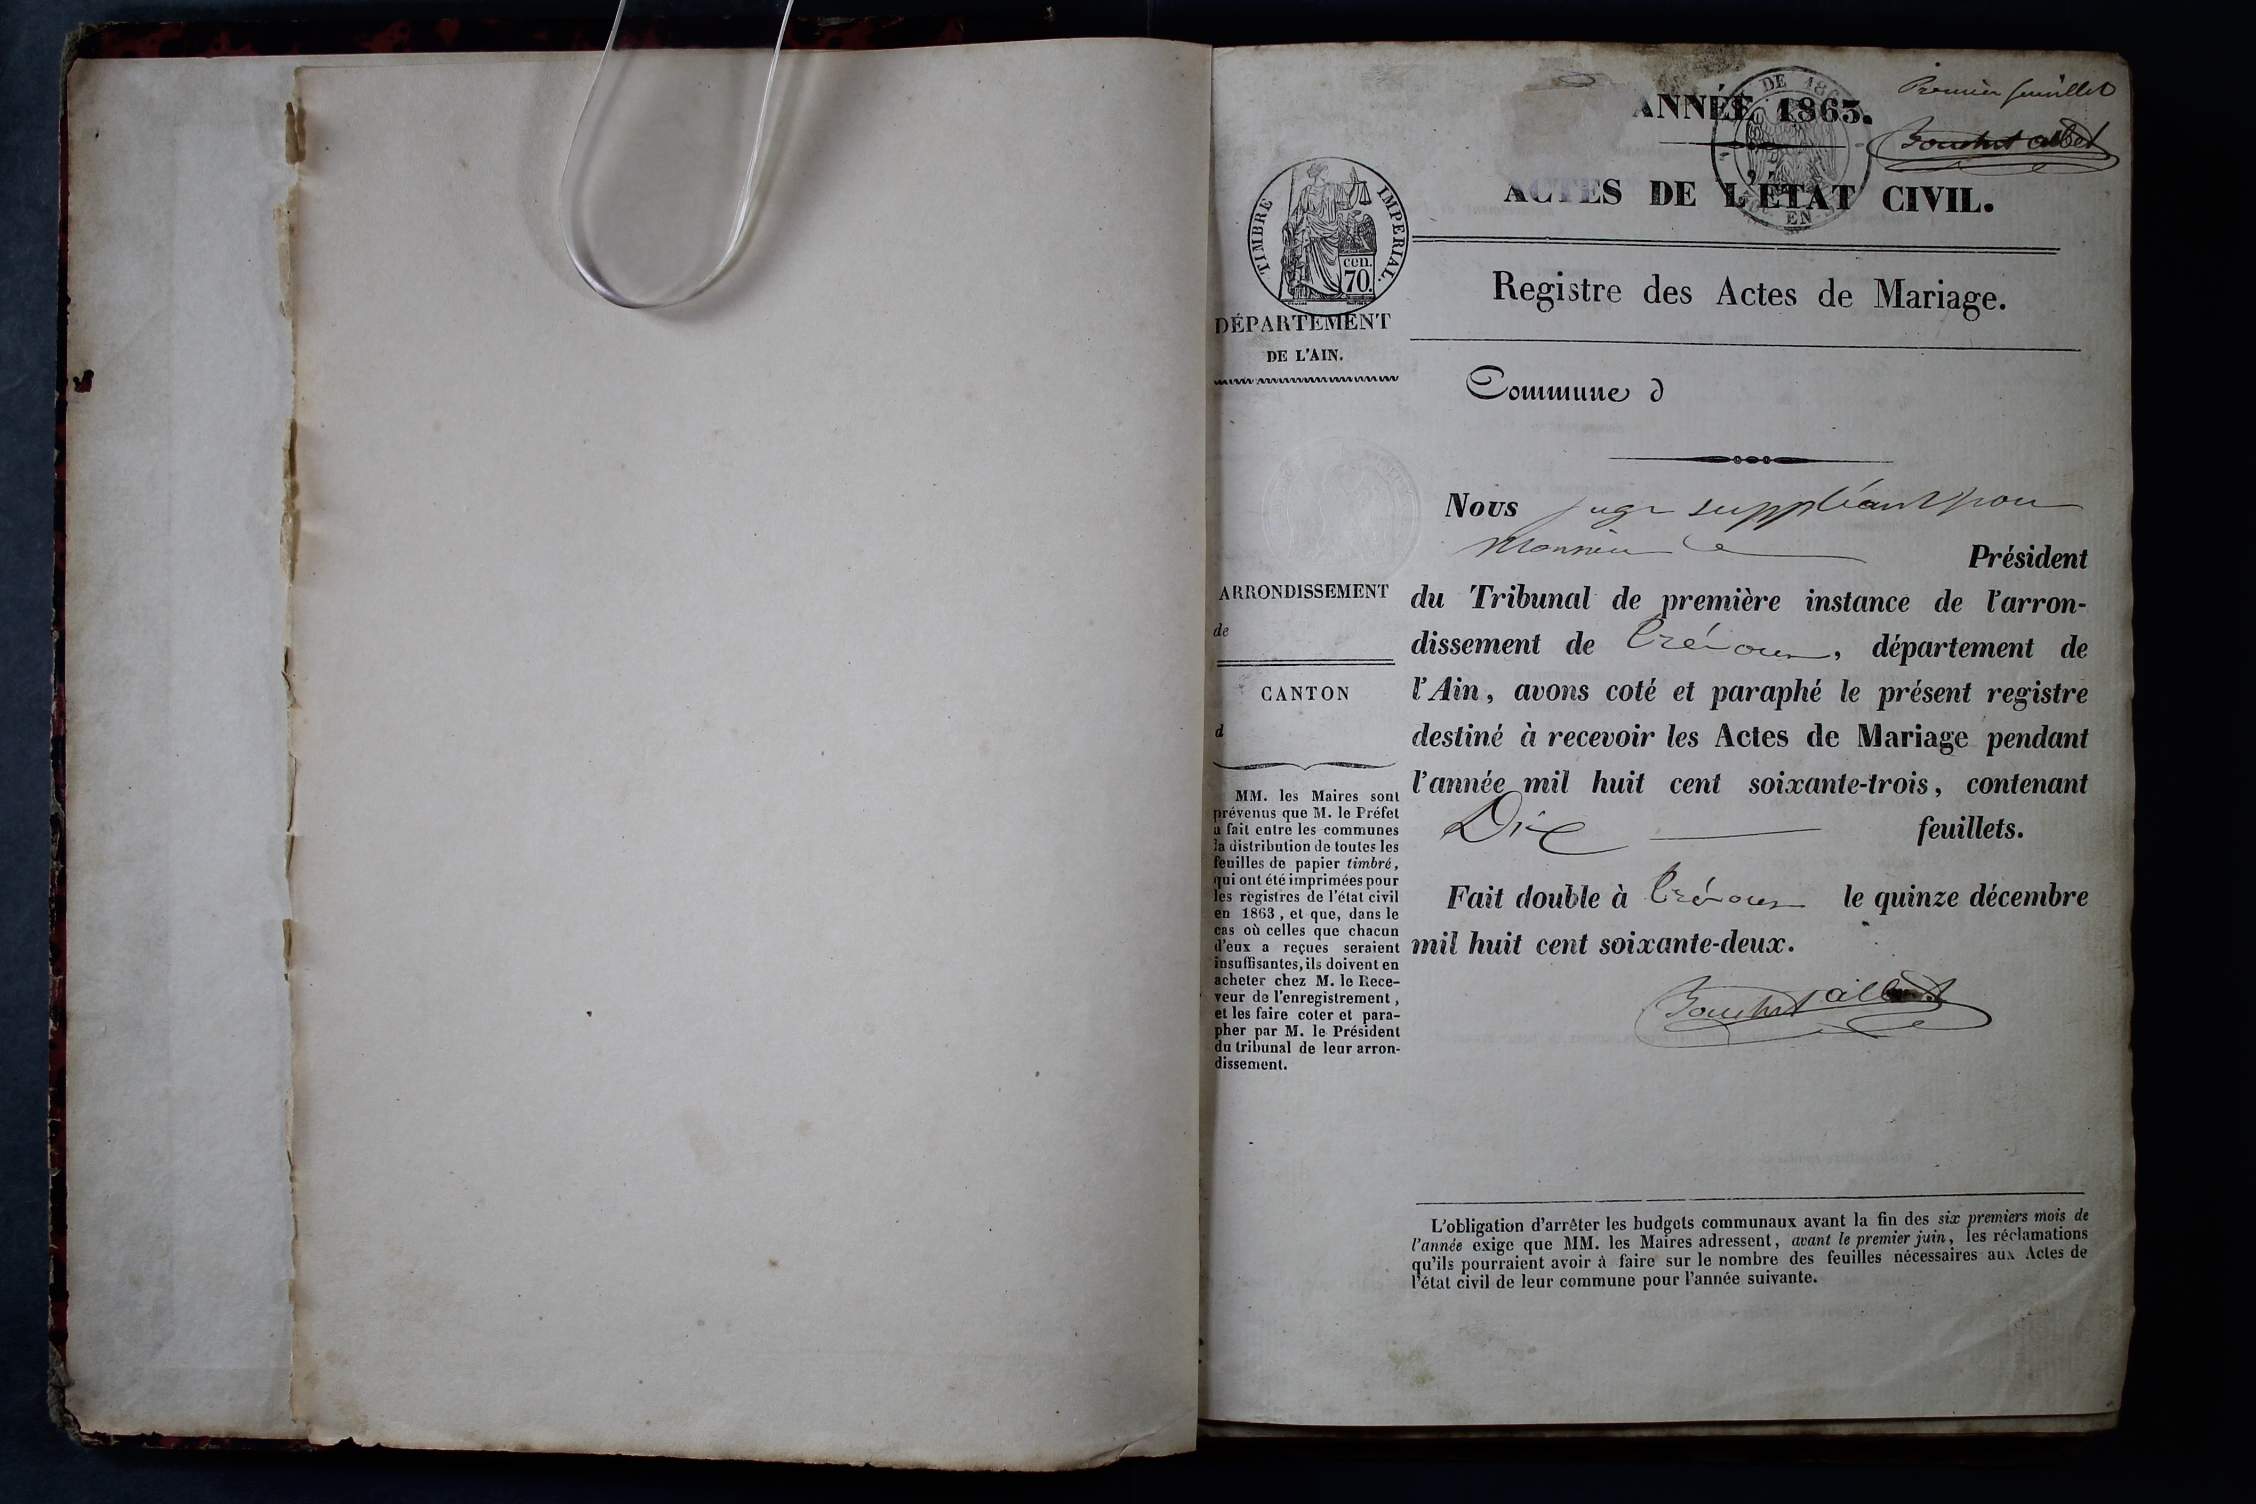 Premier feuillet
ANNÉE 1863.
ACTES DE L'ÉTAT CIVIL.
DE 186
EN
TIMBRE IMPERIAL.
cen.
70.
Registre des Actes de Mariage.
DÉPARTEMENT
DE L'AIN.
Commune d
ARRONDISSEMENT
de
CANTON
d
MM. les Maires sont
prévenus que M. le Préfet
a fait entre les communes
la distribution de toutes les
feuilles de papier timbré,
qui ont été imprimées pour
les registres de l'état civil
en 1863, et que, dans le
cas où celles que chacun
d'eux a reçues seraient
insuffisantes, ils doivent en
acheter chez M. le Rece-
veur de l'enregistrement,
et les faire coter et para-
pher par M. le Président
du tribunal de leur arron-
dissement.
Nous juge suppléant pour
Monsieur le Président
du Tribunal de première instance de l'arron-
dissement de Trévoux, département de
l'Ain, avons coté et paraphé le présent registre
destiné à recevoir les Actes de Mariage pendant
l'année mil huit cent soixante-trois, contenant
Dix feuillets.
Fait double à Trévoux le quinze décembre
mil huit cent soixante-deux.
L'obligation d'arrêter les budgets communaux avant la fin des six premiers mois de
l'année exige que MM. les Maires adressent, avant le premier juin, les réclamations
qu'ils pourraient avoir à faire sur le nombre des feuilles nécessaires aux Actes de
l'état civil de leur commune pour l'année suivante.